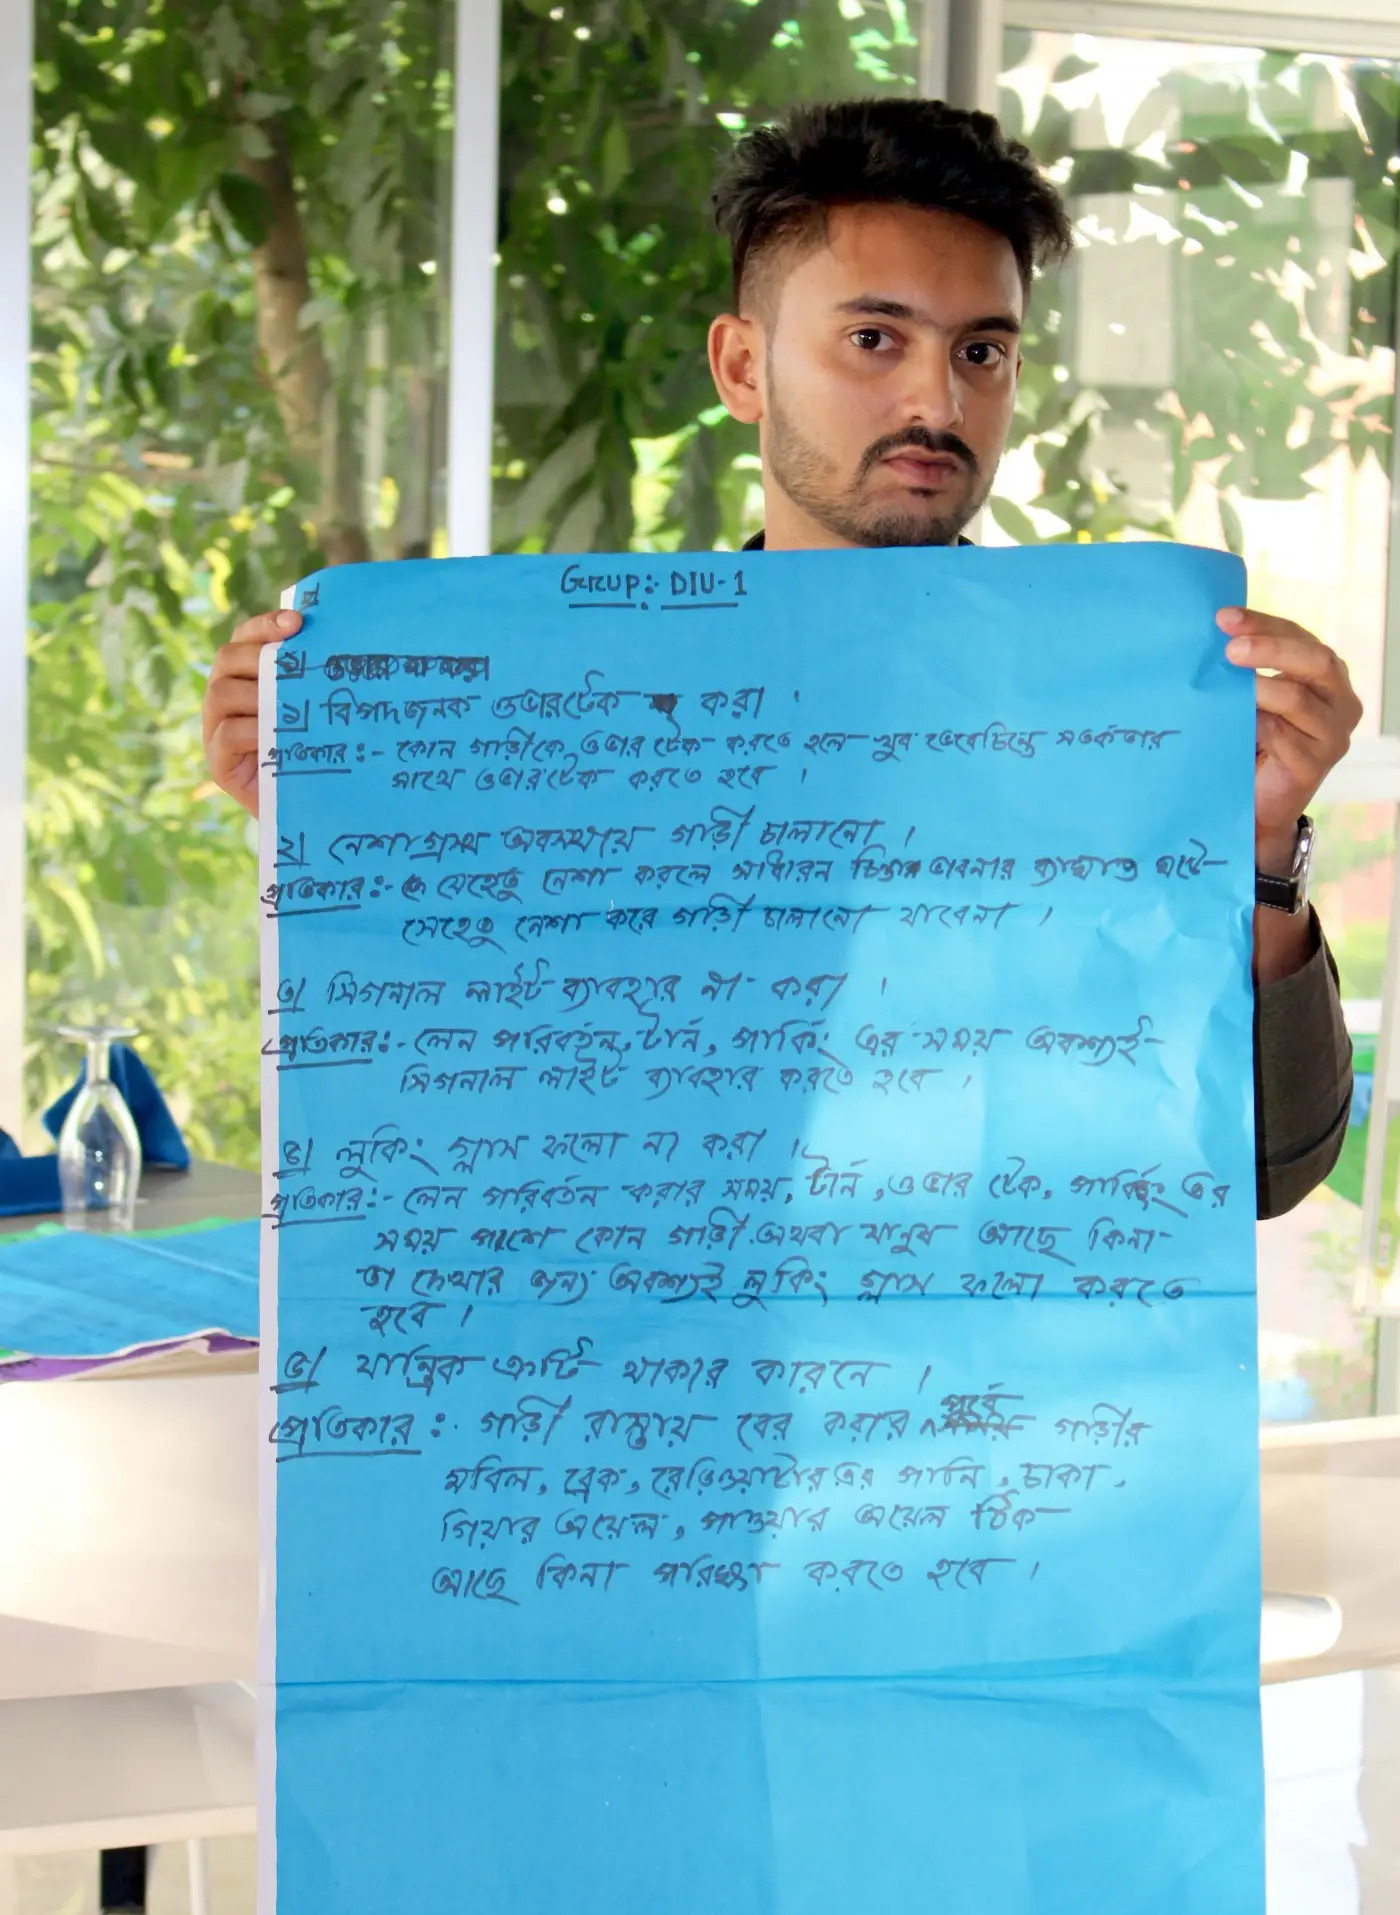 Grup:- DIU-1
১| বিপদজনক ওভারটেক করা।
প্রতিকার:- কোন গাড়ীকে ওভার টেক করতে হলে খুব ভেবেচিন্তে সতর্কতার
সাথে ওভারটেক করতে হবে।
২| নেশাগ্রস্থ অবস্থায়ে গাড়ী চালানো।
প্রতিকার:- যেহেতু নেশা করলে সাধারন চিন্তা ভাবনার ব্যাঘাত ঘটে
সেহেতু নেশা করে গাড়ী চালানো যাবেনা।
৩| সিগনাল লাইট ব্যাবহার না করা।
প্রতিকার:- লেন পরিবর্তন, টার্ন, পার্কিং এর সময় অবশ্যই
সিগনাল লাইট ব্যাবহার করতে হবে।
৪| লুকিং গ্লাস ফলো না করা।
প্রতিকার:- লেন পরিবর্তন করার সময়, টার্ন, ওভার টেক, পার্কিং এর
সময় পাশে কোন গাড়ী অথবা মানুষ আছে কিনা
তা দেখার জন্য অবশ্যই লুকিং গ্লাস ফলো করতে
হবে।
৫| যান্ত্রিক ত্রুটি থাকার কারনে।
প্রতিকার: গাড়ী রাস্তায় বের করার পূর্বে গাড়ীর
মবিল, ব্রেক, রেডিওয়াটার এর পানি, চাকা,
গিয়ার অয়েল, পাওয়ার অয়েল ঠিক
আছে কিনা পরিক্ষা করতে হবে।